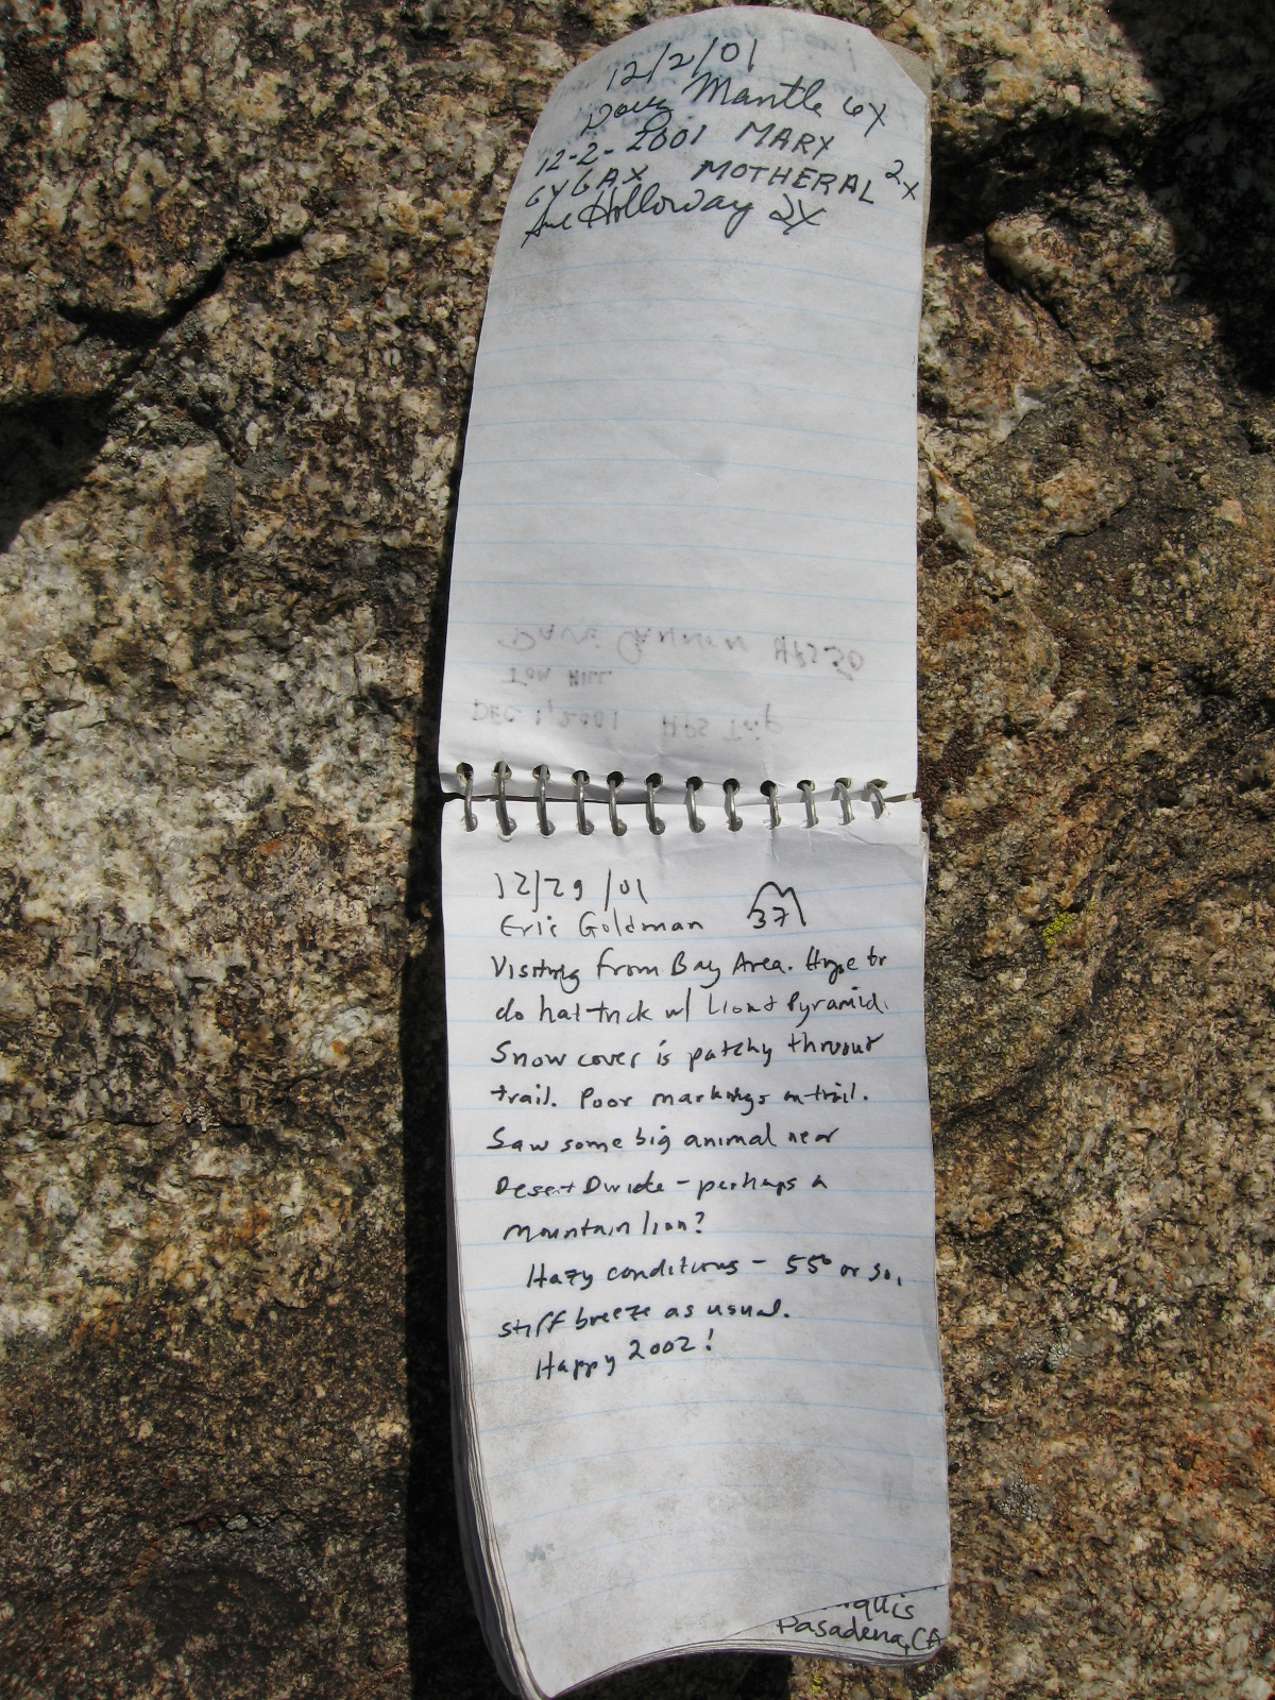 12/2/01
Doug Mantle 6X
12-2-2001 MARY
GYGAX MOTHERAL 2X
Sue Holloway 2X
Dave Cannon HPS 50
TOM HILL
DEC 1, 2001 HPS Trip
12/29/01
Eric Goldman 37
Visiting from Bay Area. Hope to
do hat-trick w/ Lion + Pyramid.
Snow cover is patchy thruout
trail. Poor markings on trail.
Saw some big animal near
Desert Divide - perhaps a
mountain lion?
Hazy conditions - 55° or so,
stiff breeze as usual.
Happy 2002!
Pasadena, CA